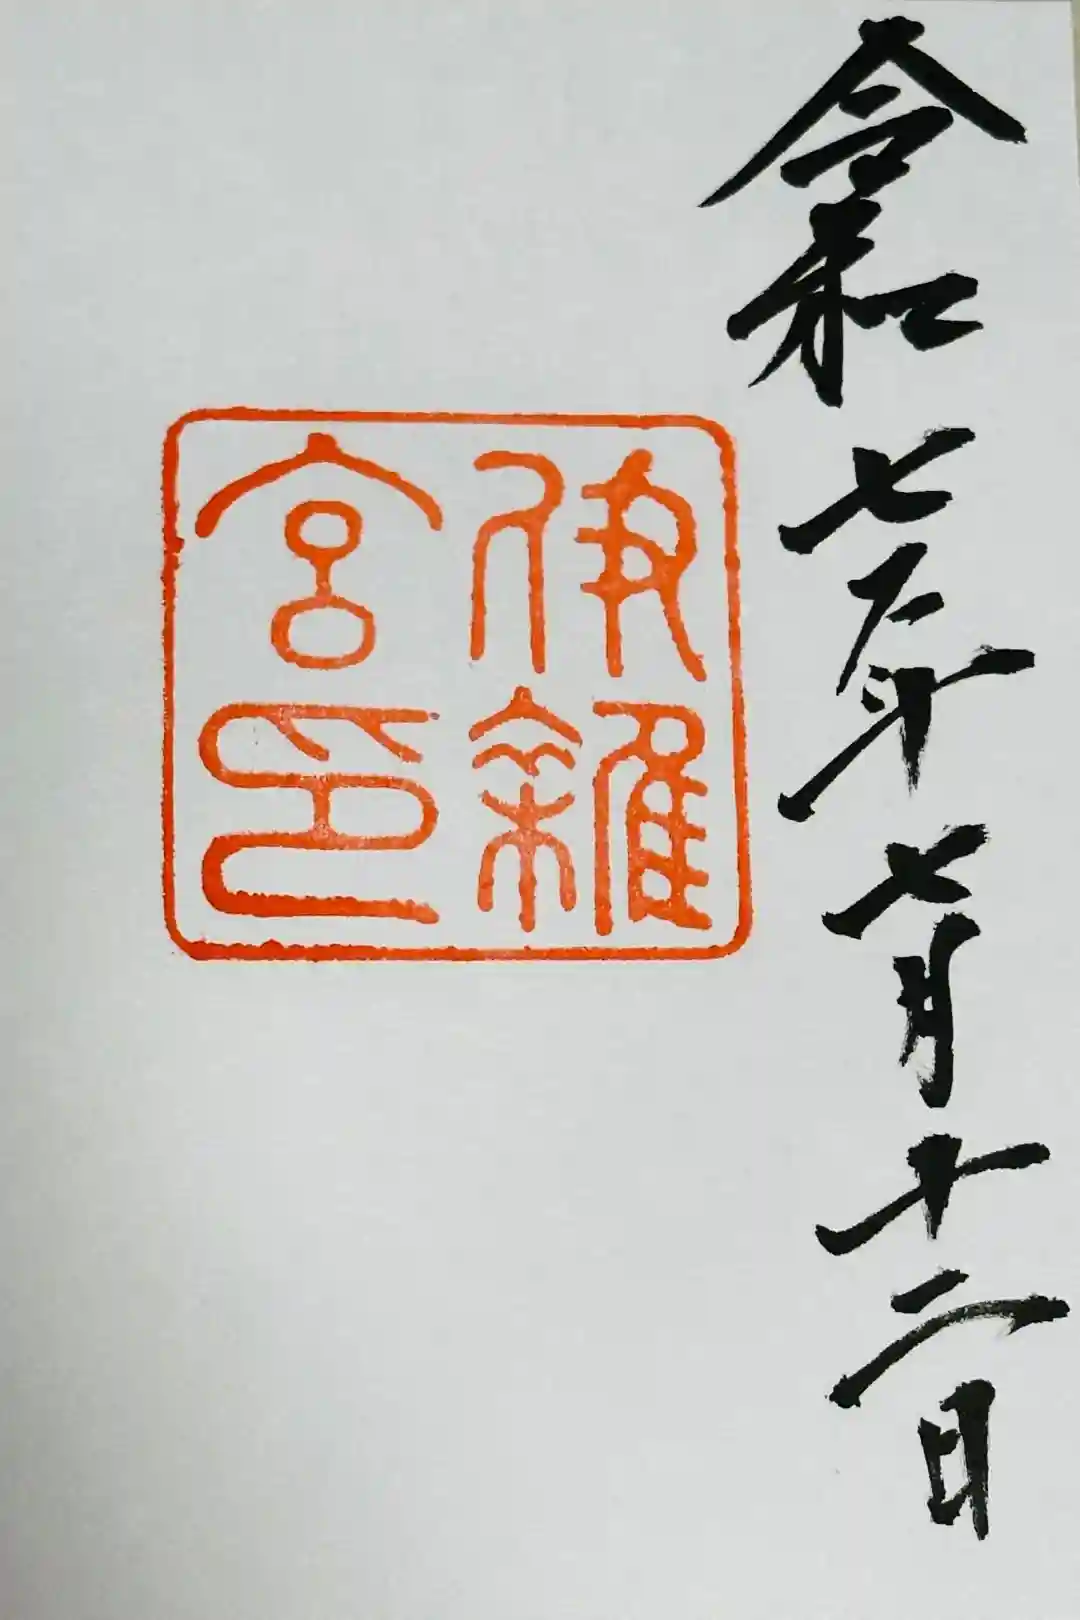 令和七年七月十二日
伊雜
宮印